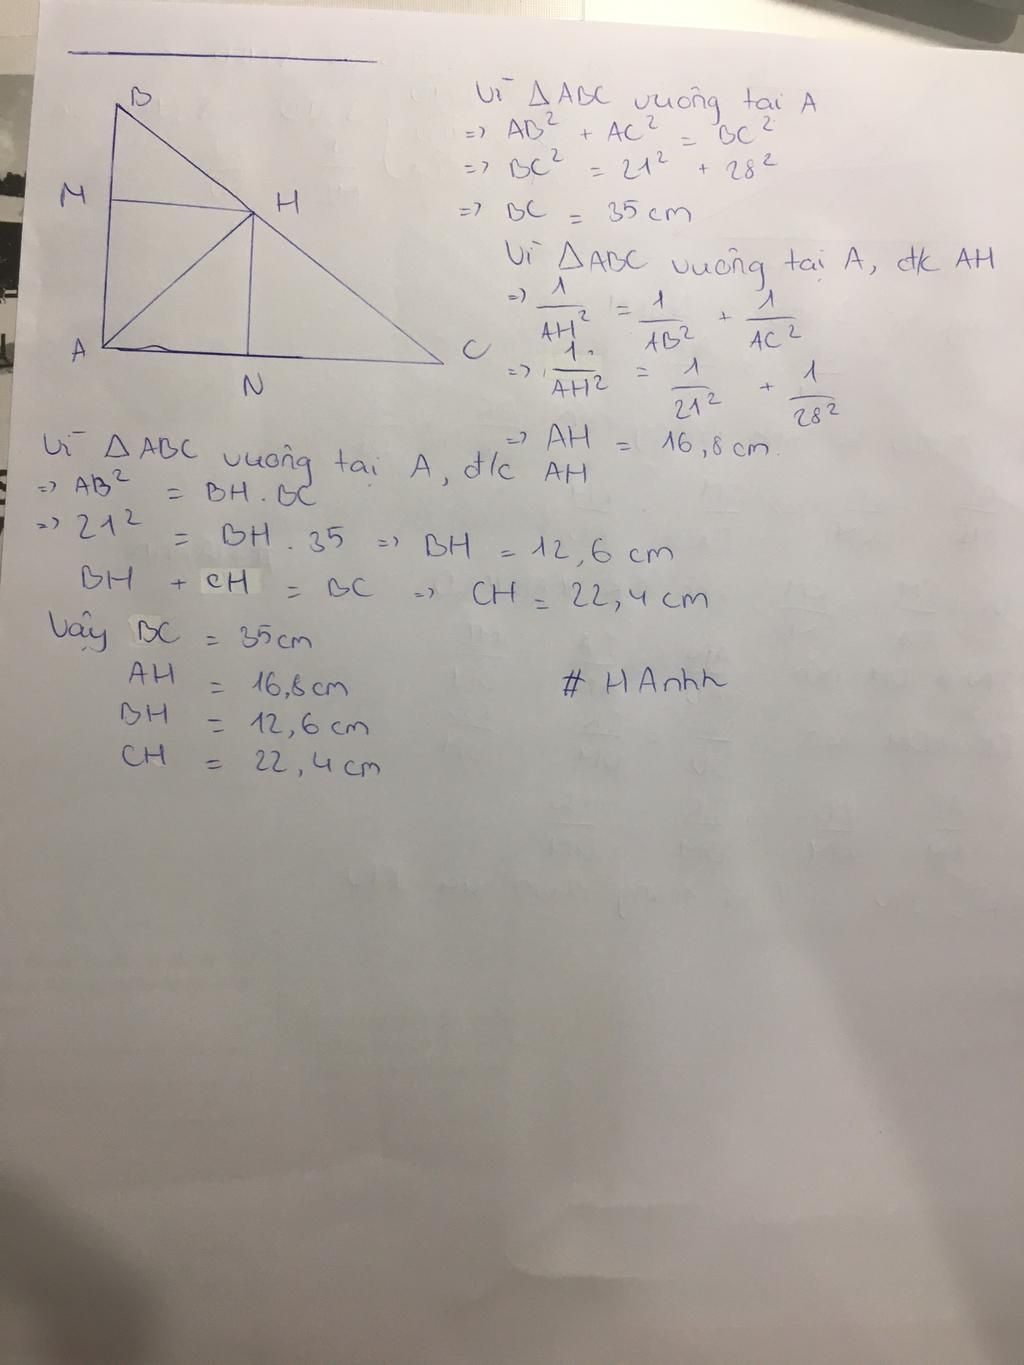 B
M
H
A
N
C
Vì ΔABC vuông tại A
=> AB² + AC² = BC²
=> BC² = 21² + 28²
=> BC = 35 cm
Vì ΔABC vuông tại A, đ/c AH
=> 1/AH² = 1/AB² + 1/AC²
=> 1/AH² = 1/21² + 1/28²
=> AH = 16,8 cm.
Vì ΔABC vuông tại A, đ/c AH
=> AB² = BH . BC
=> 21² = BH . 35 => BH = 12,6 cm
BH + CH = BC => CH = 22,4 cm
Vậy BC = 35 cm
AH = 16,8 cm
BH = 12,6 cm
CH = 22,4 cm
# HAnhh